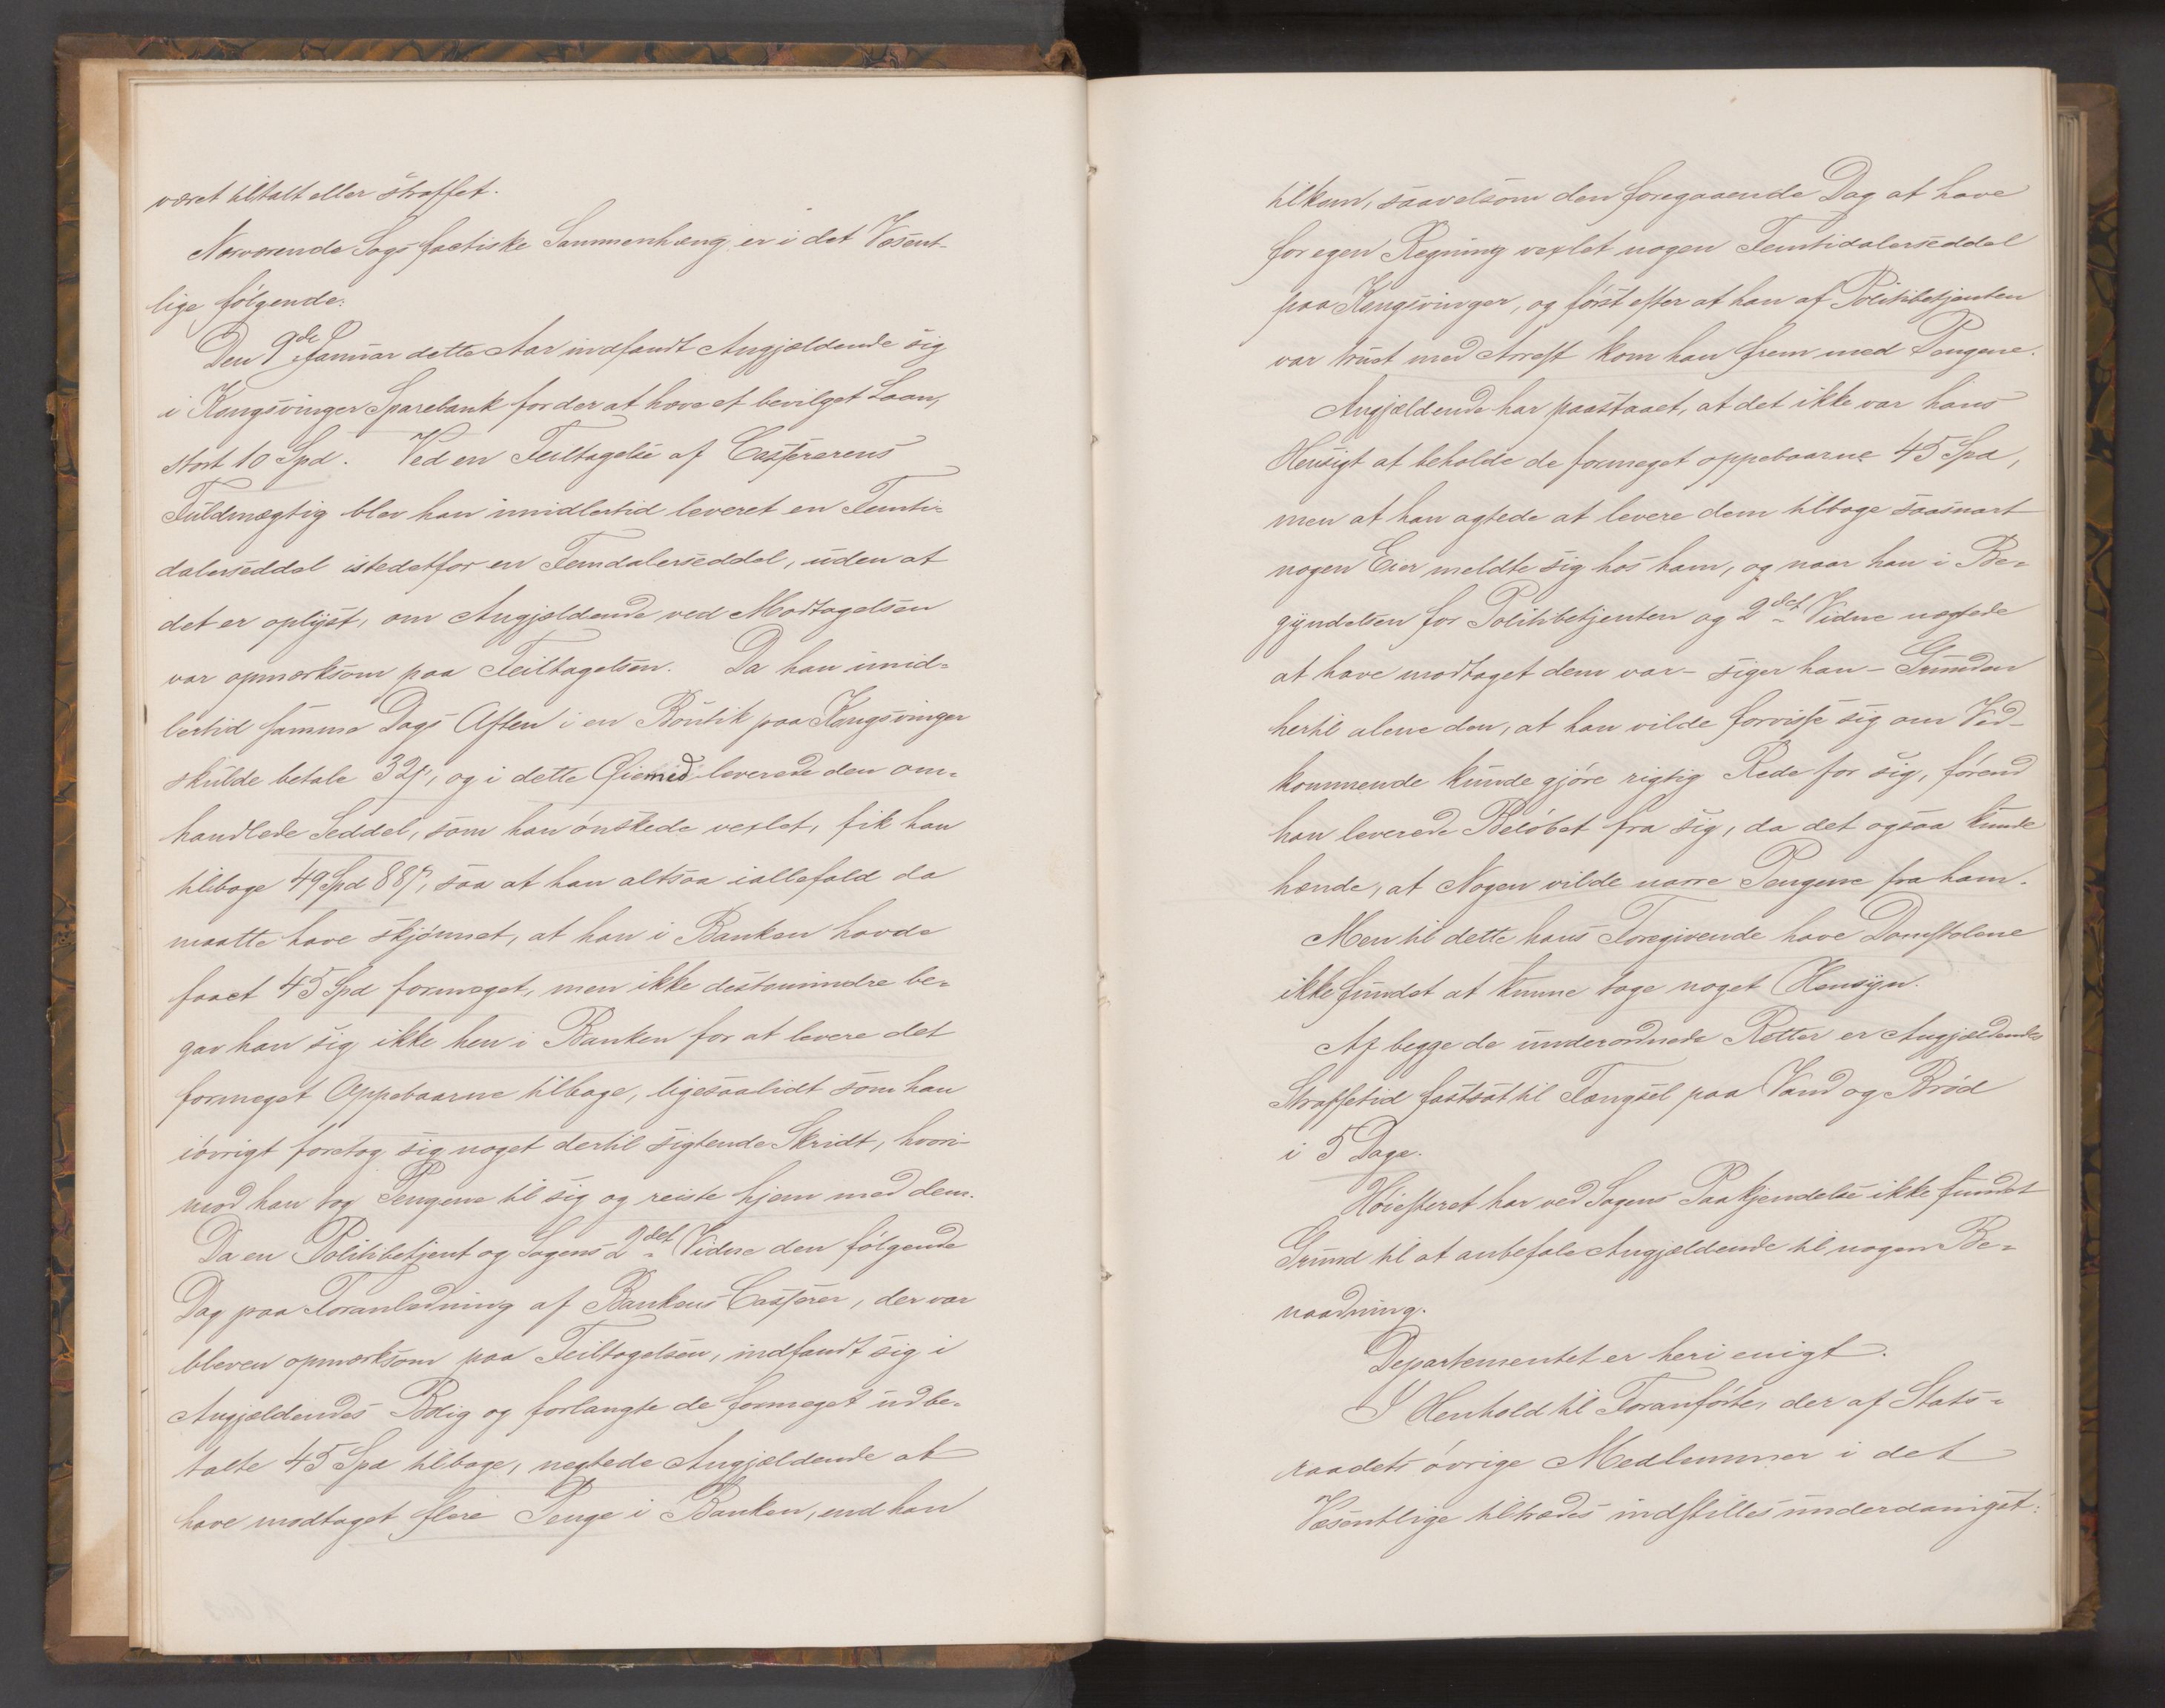 været tiltalt eller straffet.
Nærværende Sags factiske Sammenhæng er i det Væsent-
lige følgende:
Den 9de Januar dette Aar indfandt Angjældende sig
i Kongsvinger Sparebank for der at hæve et bevilget Laan,
stort 10 Spd. Ved en Feiltagelse af Cassererens
Fuldmægtig blev han imidlertid leveret en Femti-
dalerseddel istedetfor en Femdalerseddel, uden at
det er oplyst, om Angjældende ved Modtagelsen
var opmærksom paa Feiltagelsen. Da han imid-
lertid samme Dags Aften i en Boutik paa Kongsvinger
skulde betale 32 β, og i dette Øiemed leverede den om-
handlede Seddel, som han ønskede vexlet, fik han
tilbage 49 Spd 88 β, saa at han altsaa iallefald da
maatte have skjønnet, at han i Banken havde
faaet 45 Spd formeget, men ikke destomindre be-
gav han sig ikke hen i Banken for at levere det
formeget Oppebaarne tilbage, ligesaalidt som han
iøvrigt foretog sig noget dertil sigtende Skridt, hvori-
mod han tog Pengene til sig og reiste hjem med dem.
Da en Politibetjent og Sagens 2det Vidne den følgende
Dag paa Foranledning af Bankens Casserer, der var
bleven opmærksom paa Feiltagelsen, indfandt sig i
Angjældendes Bolig og forlangte de formeget udbe-
talte 45 Spd tilbage, negtede Angjældende at
have modtaget flere Penge i Banken, end han
tilkom, saavelsom den foregaaende Dag at have
for egen Regning vexlet nogen Femtidalerseddel
paa Kongsvinger, og først efter at han af Politibetjenten
var truet med Arrest kom han frem med Pengene.
Angjældende har paastaaet, at det ikke var hans
Hensigt at beholde de formeget oppebaarne 45 Spd,
men at han agtede at levere dem tilbage saasnart
nogen Eier meldte sig hos ham, og naar han i Be-
gyndelsen for Politibetjenten og 2det Vidne negtede
at have modtaget dem var - siger han - Grunden
hertil alene den, at han vilde forvisse sig om Ved-
kommende kunde gjøre rigtig Rede for sig, førend
han leverede Beløbet fra sig, da det ogsaa kunde
hænde, at Nogen vilde narre Pengene fra ham.
Men til dette hans Foregivende have Domstolene
ikke fundet at kunne tage noget Hensyn.
Af begge de underordnede Retter er Angjældendes
Straffetid fastsat til Fængsel paa Vand og Brød
i 5 Dage.
Høiesteret har ved Sagens Paakjendelse ikke fundet
Grund til at anbefale Angjældende til nogen Be-
naadning.
Departementet er heri enigt.
I Henhold til Foranførte, der af Stats-
raadets øvrige Medlemmer i det
Væsentlige tiltrædes indstilles underdanigst: